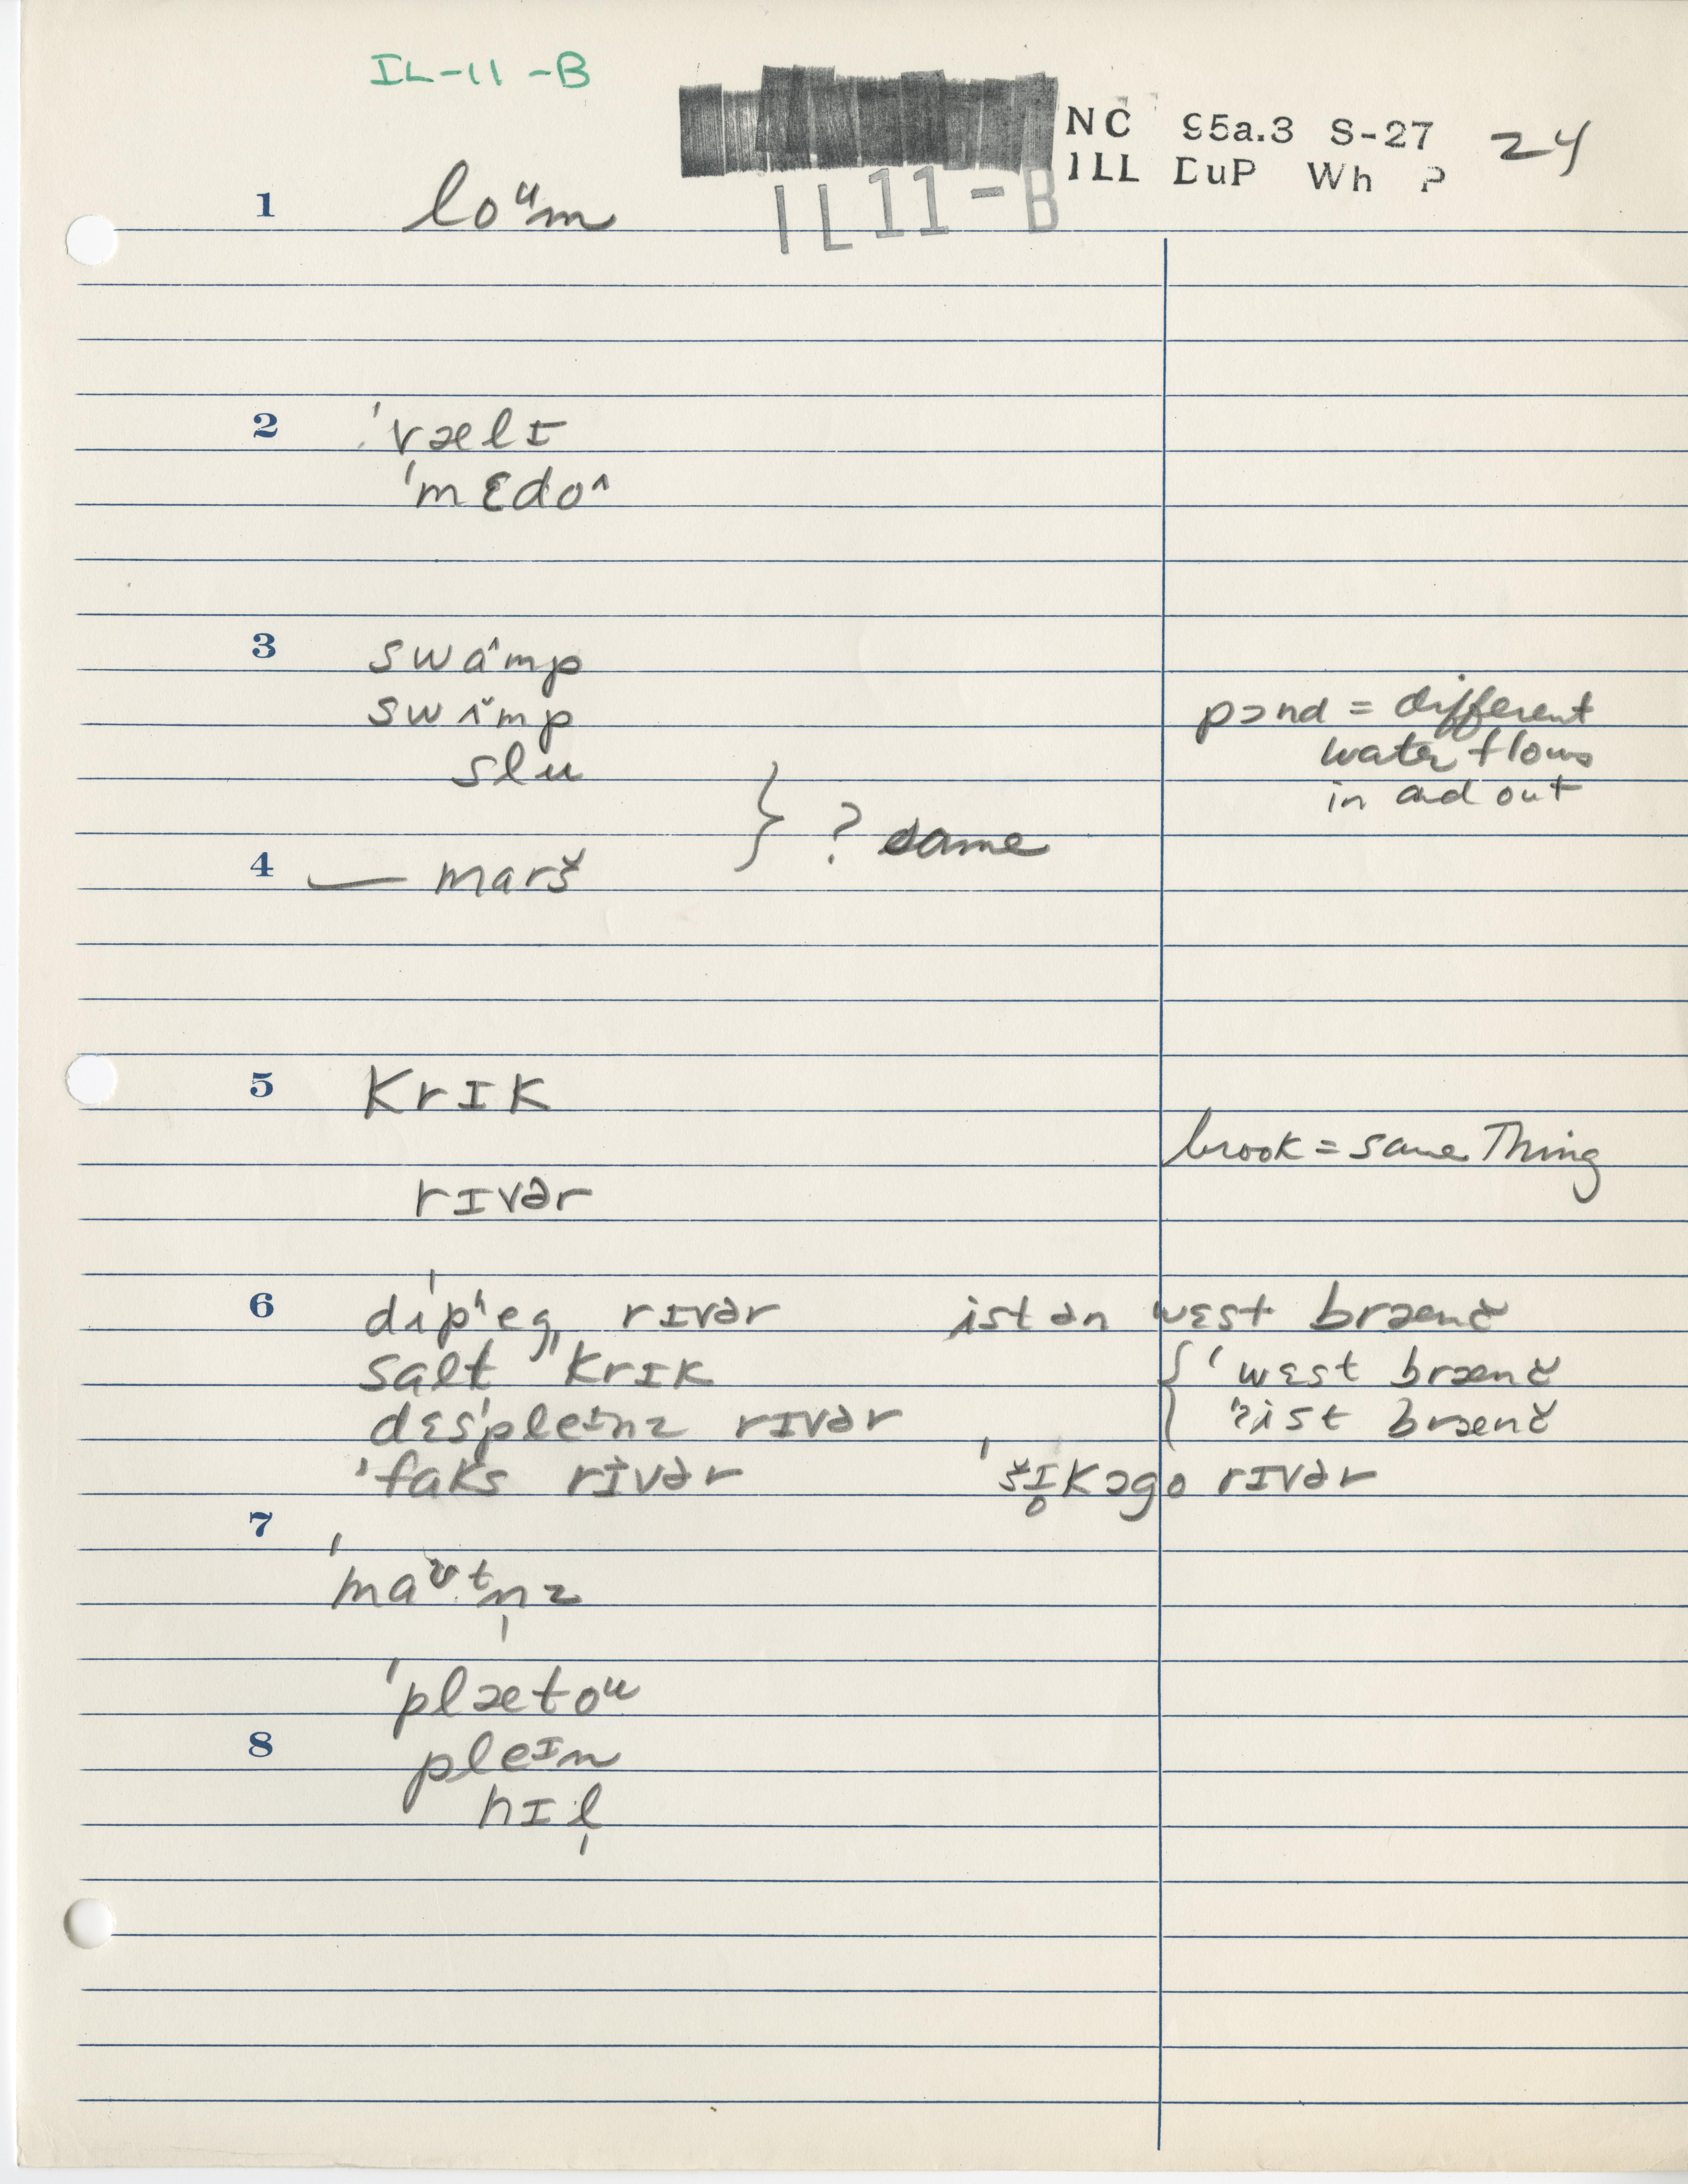 IL-11-B
NC 95a.3 S-27 24
ILL DuP Wh ?
IL11-B
1 loᵘm
2 ˈvælɪ
ˈmɛdo^
3 swa^mp
swʌˇmp
slu
pɔnd = different
water flows
in and out
} ? same
4 — marš
5 KrIK
brook = same Thing
rɪvər
6 rɪvər ist ən wɛst brænč
salt KrIK { ˈwɛst brænč
dɛsˈpleɪnz rɪvər ˈist brænč
ˈfaks rɪvər ˈšɪ̥Kɔgo rɪvər
7
ˈmaʊᵗn̩z
ˈplætoᵘ
8 pleɪn
hɪl̩